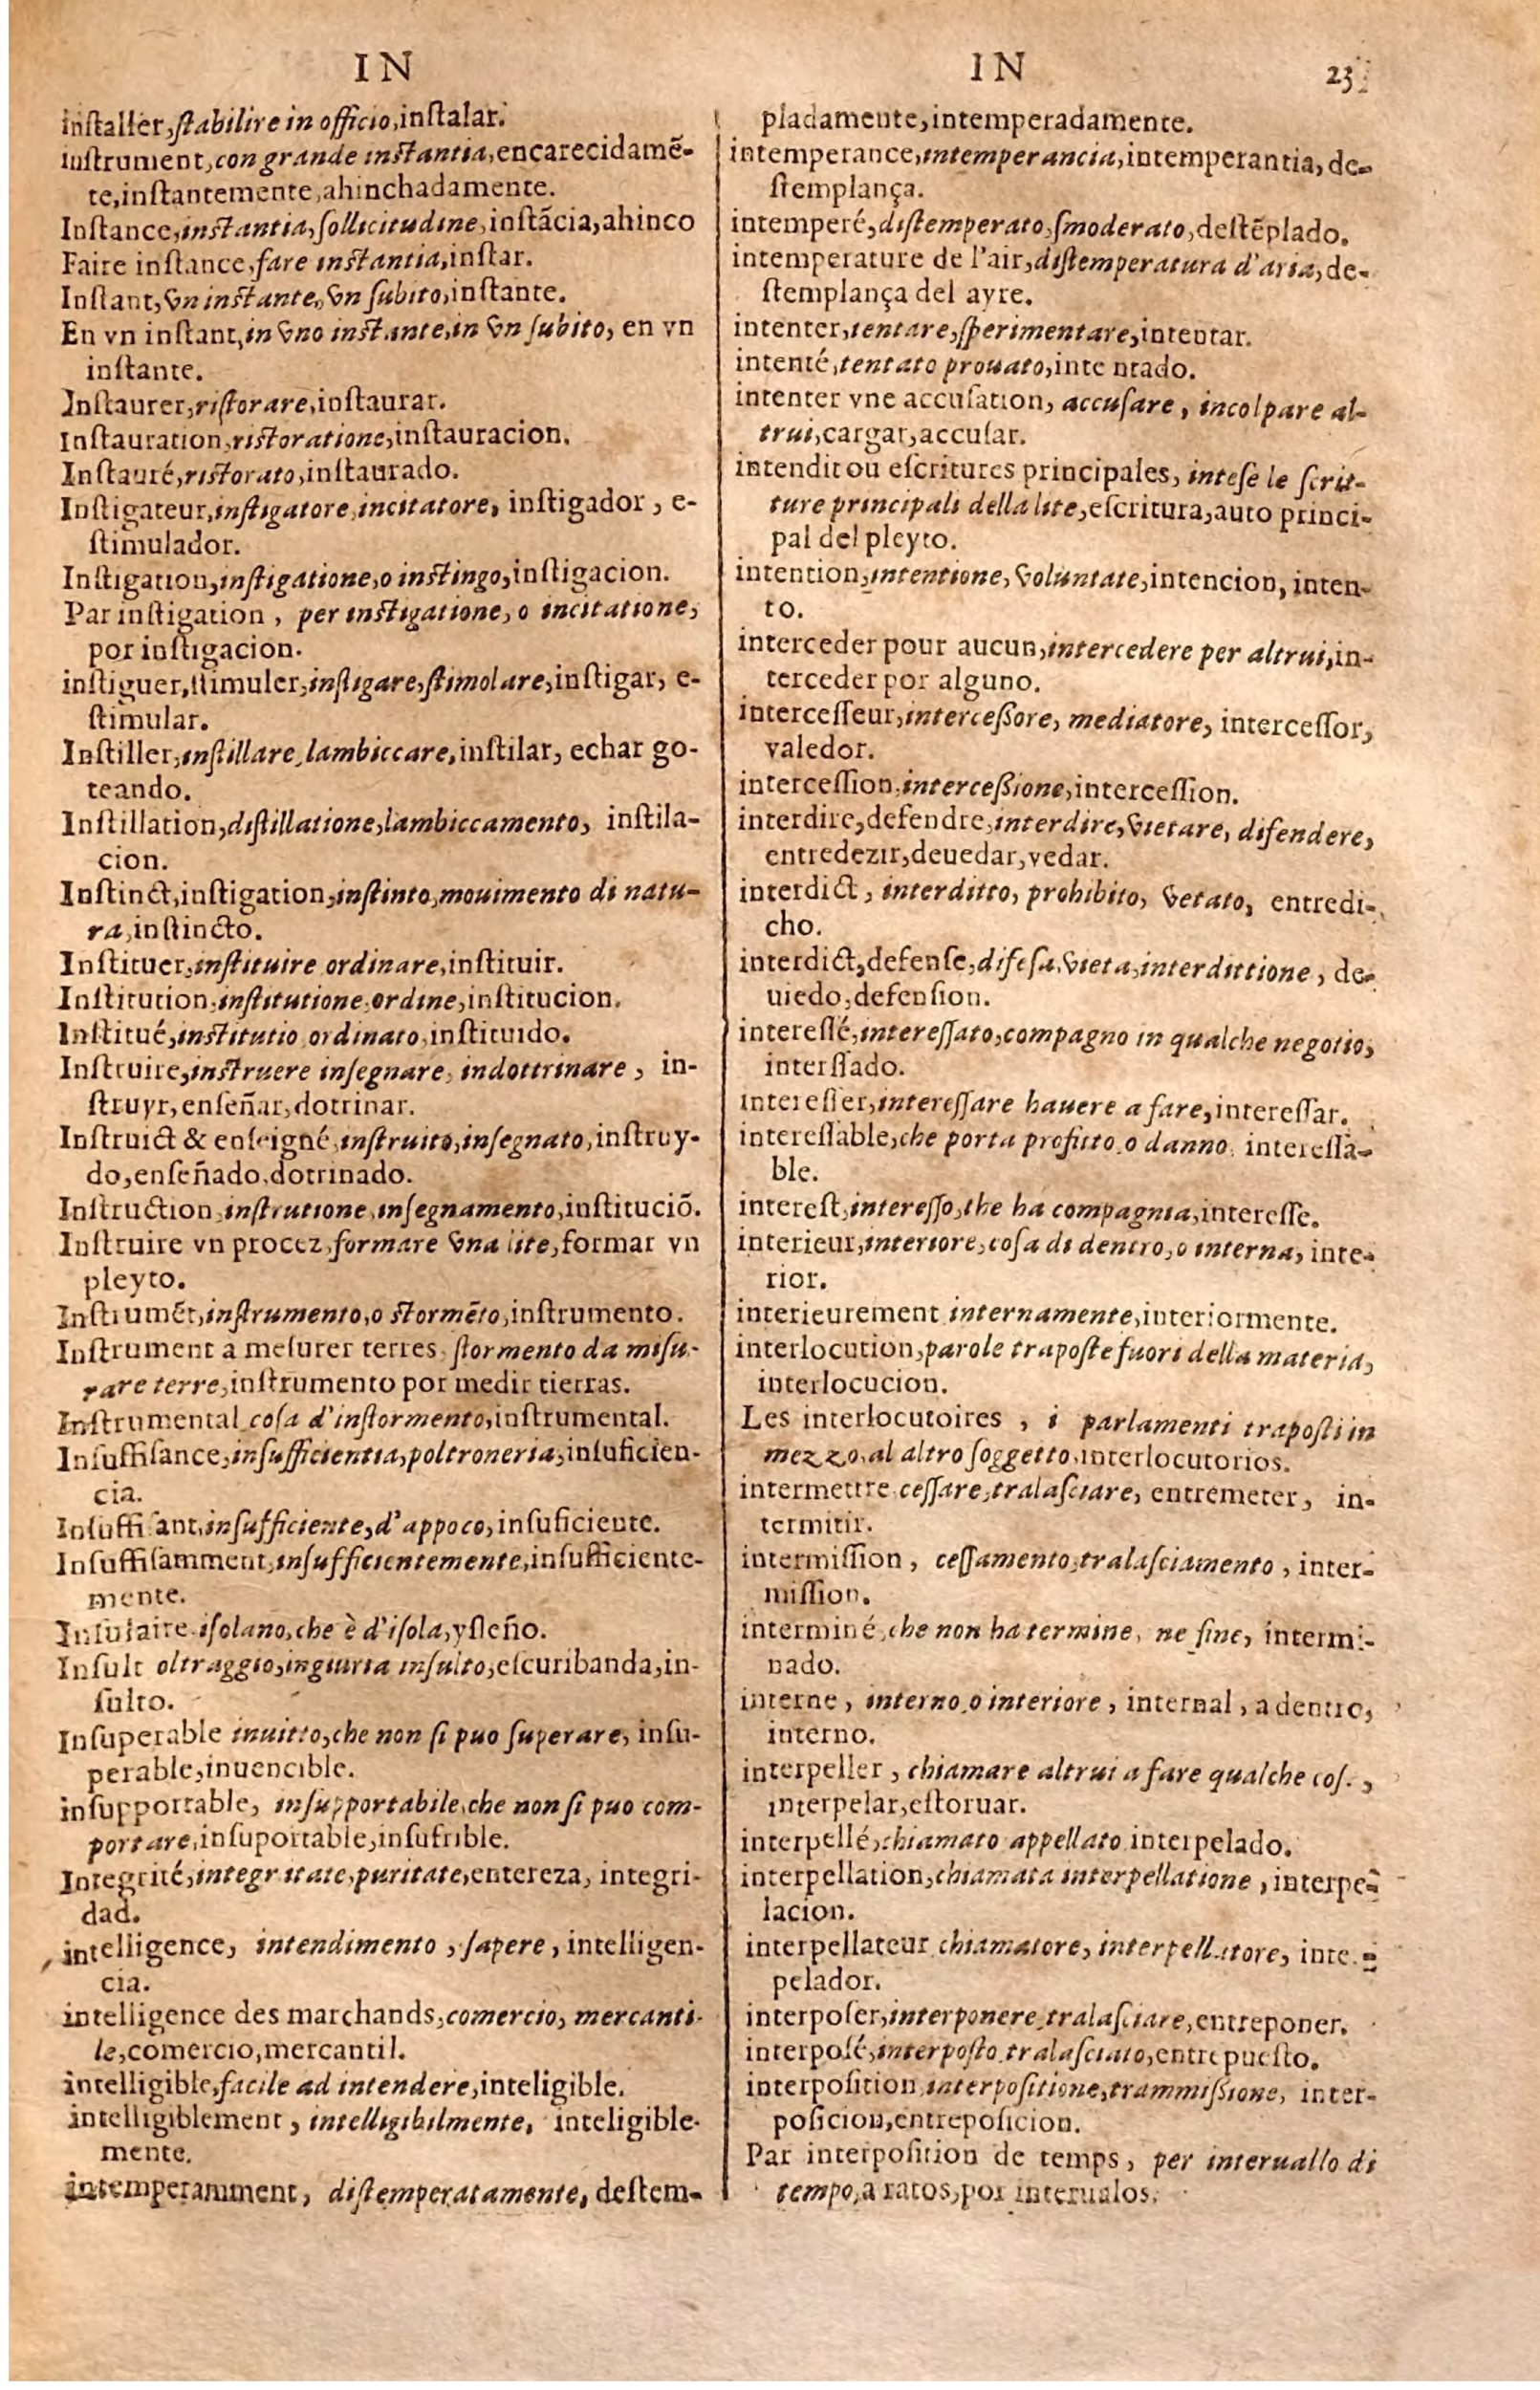 IN
installer,ſtabilire in officio,inſtalar.
inſtrument,con grande inſtantia,encarecidamẽ-
te,inſtantemente,ahinchadamente.
Inſtance,inſtantia,ſollicitudine,inſtãcia,ahinco
Faire inſtance,fare inſtantia,inſtar.
Inſtant,vn inſtante,vn ſubito,inſtante.
En vn inſtant,in vno inſtante,in vn ſubito, en vn
inſtante.
Inſtaurer,riſtorare,inſtaurar.
Inſtauration,riſtoratione,inſtauracion.
Inſtauré,riſtorato,inſtaurado.
Inſtigateur,inſtigatore,incitatore, inſtigador, e-
ſtimulador.
Inſtigation,inſtigatione,o inſtingo,inſtigacion.
Par inſtigation, per inſtigatione, o incitatione,
por inſtigacion.
inſtiguer,ſtimuler,inſtigare,ſtimolare,inſtigar, e-
ſtimular.
Inſtiller,inſtillare,lambiccare,inſtilar, echar go-
teando.
Inſtillation,diſtillatione,lambiccamento, inſtila-
cion.
Inſtinct,inſtigation,inſtinto,mouimento di natu-
ra,inſtincto.
Inſtituer,inſtituire ordinare,inſtituir.
Inſtitution,inſtitutione,ordine,inſtitucion.
Inſtitué,inſtitutio ordinato,inſtituido.
Inſtruire,inſtruere inſegnare, indottrinare, in-
ſtruyr,enſeñar,dotrinar.
Inſtruict & enſeigné,inſtruito,inſegnato,inſtruy-
do,enſeñado,dotrinado.
Inſtruction,inſtrutione,inſegnamento,inſtituciõ.
Inſtruire vn procez,formare vna lite,formar vn
pleyto.
Inſtrumẽt,inſtrumento,o ſtormẽto,inſtrumento.
Inſtrument a meſurer terres,ſtormento da miſu-
rare terre,inſtrumento por medir tierras.
Inſtrumental coſa d'inſtormento,inſtrumental.
Inſuffiſance,inſufficientia,poltroneria,inſuficien-
cia.
Inſuffiſant,inſufficiente,d'appoco,inſuficiente.
Inſuffiſamment,inſufficientemente,inſufficiente-
mente.
Inſulaire iſolano,che è d'iſola,yſleño.
Inſult oltraggio,ingiuria inſulto,eſcuribanda,in-
ſulto.
Inſuperable inuitto,che non ſi puo ſuperare, inſu-
perable,inuencible.
inſupportable, inſupportabile,che non ſi puo com-
portare,inſuportable,inſufrible.
Integrité,integritate,puritate,entereza, integri-
dad.
intelligence, intendimento, ſapere, intelligen-
cia.
intelligence des marchands,comercio, mercanti-
le,comercio,mercantil.
intelligible,facile ad intendere,inteligible.
intelligiblement, intelligibilmente, inteligible-
mente.
intemperamment, diſtemperatamente, deſtem-
IN 23
pladamente,intemperadamente.
intemperance,intemperancia,intemperantia, de-
ſtemplança.
intemperé,diſtemperato,ſmoderato,deſtẽplado.
intemperature de l'air,diſtemperatura d'aria,de-
ſtemplança del ayre.
intenter,tentare,ſperimentare,intentar.
intenté,tentato prouato,inte ntado.
intenter vne accuſation, accuſare, incolpare al-
trui,cargar,accuſar.
intendit ou eſcritures principales, inteſe le ſcrit-
ture principali della lite,eſcritura,auto princi-
pal del pleyto.
intention,intentione,voluntate,intencion, inten-
to.
interceder pour aucun,intercedere per altrui,in-
terceder por alguno.
interceſſeur,interceßore, mediatore, interceſſor,
valedor.
interceſſion,interceßione,interceſſion.
interdire,defendre,interdire,vietare, difendere,
entredezir,deuedar,vedar.
interdict, interditto, prohibito, vetato, entredi-
cho.
interdict,defenſe,difeſa,vieta,interdittione, de-
uiedo,defenſion.
intereſſé,intereſſato,compagno in qualche negotio,
interſſado.
intereſſer,intereſſare hauere a fare,intereſſar.
intereſſable,che porta profitto o danno, intereſſa-
ble.
intereſt,intereſſo,the ha compagnia,intereſſe.
interieur,interiore,coſa di dentro,o interna, inte-
rior.
interieurement internamente,interiormente.
interlocution,parole trapoſte fuori della materia,
interlocucion.
Les interlocutoires, i parlamenti trapoſti in
mezzo,al altro ſoggetto,interlocutorios.
intermettre ceſſare,tralaſciare, entremeter, in-
termitir.
intermiſſion, ceſſamento,tralaſciamento, inter-
miſſion.
interminé,che non ha termine, ne fine, intermi-
nado.
interne, interno,o interiore, internal, a dentro,
interno.
interpeller, chiamare altrui a fare qualche coſ.,
interpelar,eſtoruar.
interpellé,chiamato appellato interpelado.
interpellation,chiamata interpellatione, interpe-
lacion.
interpellateur chiamatore, interpellatore, inte.-
pelador.
interpoſer,interponere,tralaſciare,entreponer.
interpoſé,interpoſto,tralaſciato,entrepueſto.
interpoſition,interpoſitione,trammißione, inter-
poſicion,entrepoſicion.
Par interpoſition de temps, per interuallo di
tempo,a ratos,por interualos.